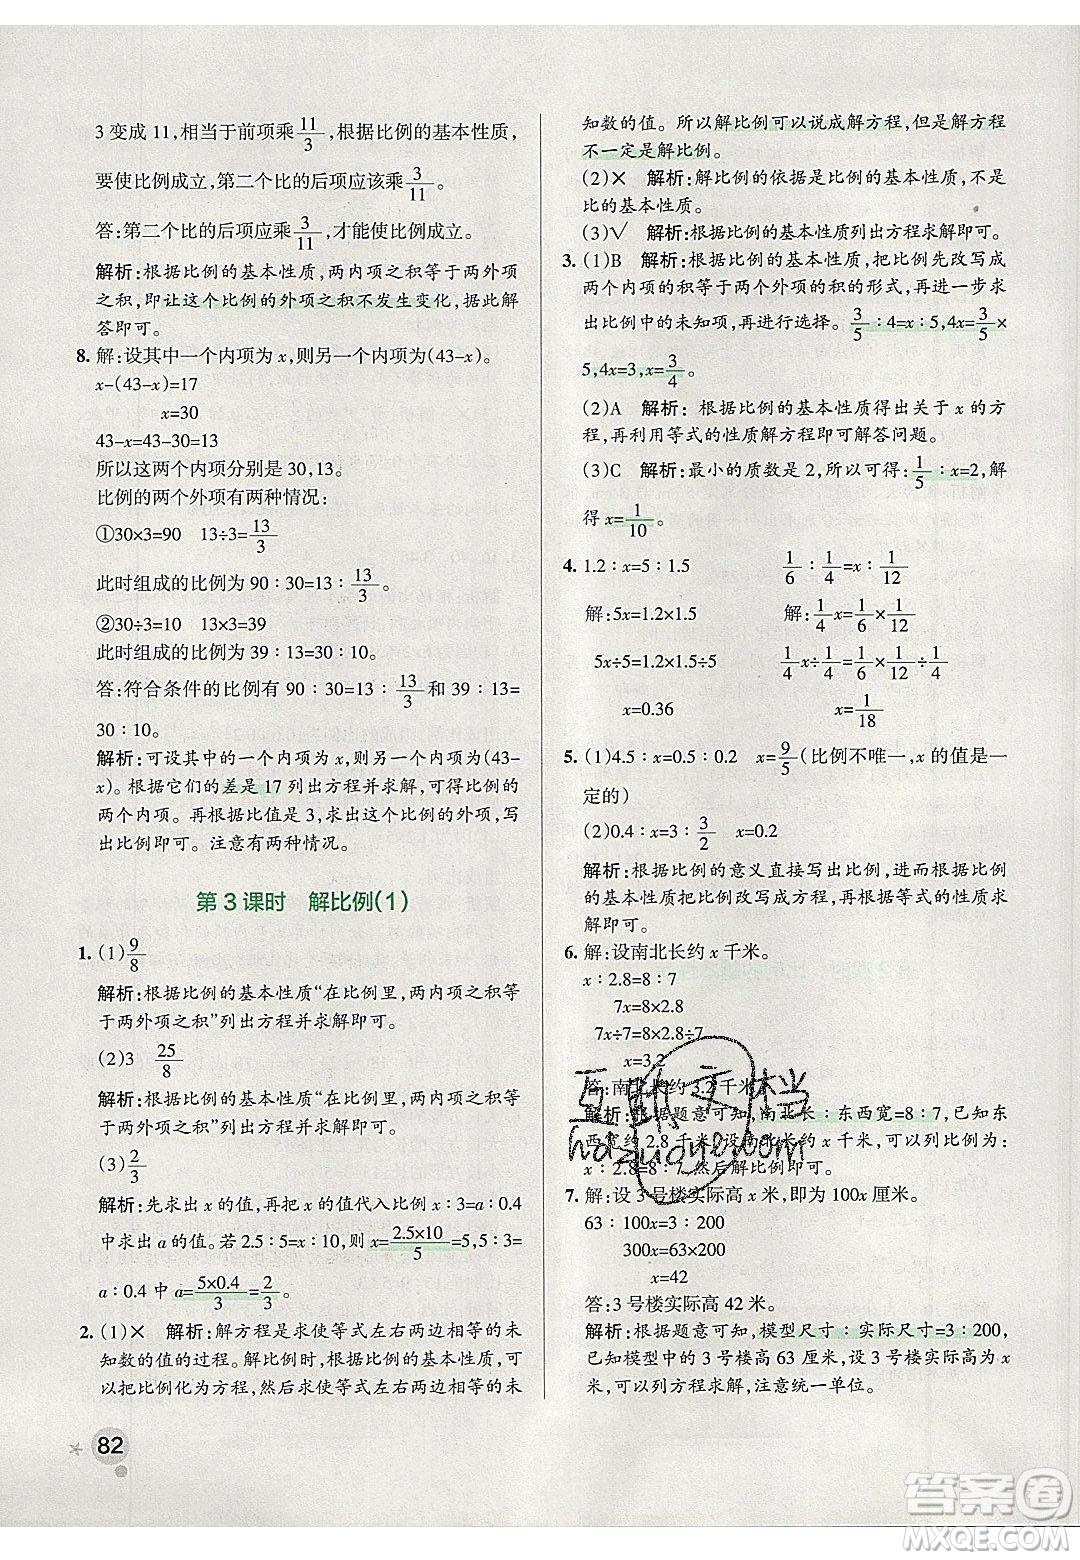 3变成11,相当于前项乘11/3,根据比例的基本性质,
要使比例成立,第二个比的后项应该乘3/11。
答:第二个比的后项应乘3/11,才能使比例成立。
解析:根据比例的基本性质,两内项之积等于两外项
之积,即让这个比例的外项之积不发生变化,据此解
答即可。
8. 解:设其中一个内项为x,则另一个内项为(43-x)。
x-(43-x)=17
x=30
43-x=43-30=13
所以这两个内项分别是30,13。
比例的两个外项有两种情况:
①30×3=90 13÷3=13/3
此时组成的比例90∶30=13∶13/3。
②30÷3=10 13×3=39
此时组成的比例39∶13=30∶10。
答:符合条件的比例有90∶30=13∶13/3和39∶13=
30∶10。
解析:可设其中的一个内项为x,则另一个内项为(43-
x)。根据它们的差是17列出方程并求解,可得比例的
两个内项。再根据比值是3,求出这个比例的外项,写
出比例即可。注意有两种情况。
第3课时 解比例(1)
1. (1)9/8
解析:根据比例的基本性质“在比例里,两内项之积等
于两外项之积”列出方程并求解即可。
(2)3 25/8
解析:根据比例的基本性质“在比例里,两内项之积等
于两外项之积”列出方程并求解即可。
(3)2/3
解析:先求出x的值,再把x的值代入比例5∶3=a∶0.4
中求出a的值。若2.5∶5=x∶10,则x=2.5×10/5=5,5∶3=
a∶0.4中a=5×0.4/3=2/3。
2. (1)× 解析:解方程是求使等式左右两边相等的未
知数的值的过程。解比例时,根据比例的基本性质,可
以把比例化为方程,会求出使等式左右两边相等的未
82
知数的值。所以解比例可以说成解方程,但是解方程
不一定是解比例。
(2)× 解析:解比例的依据是比例的基本性质,不是
比的基本性质。
(3)√ 解析:根据比例的基本性质列出方程求解即可。
3. (1)B 解析:根据比例的基本性质,把比例先改写成
两个内项的积等于两个外项的积的形式,再进一步求
出比例中的未知项,再进行选择。3/5∶4=x∶5,4x=3/5×
5,4x=3,x=3/4。
(2)A 解析:根据比例的基本性质得出关于x的方
程,再利用等式的性质解方程即可解答问题。
(3)C 解析:最小的质数是2,所以可得:1/5∶x=2,解
得x=1/10。
4. 1.2∶x=5∶1.5 1/6∶1/4=x∶1/12
解:5x=1.2×1.5 解:1/4x=1/6×1/12
5x÷5=1.2×1.5÷5 1/4x÷1/4=1/6×1/12÷1/4
x=0.36 x=1/18
5. (1)4.5∶x=0.5∶0.2 x=9/5(比例不唯一,x的值是一
定的)
(2)0.4∶x=3∶3/2 x=0.2
解析:根据比例的意义直接写出比例,进而根据比例
的基本性质把比例改写成方程,然后根据等式的性质
求解即可。
6. 解:设南北长约x千米。
x∶2.8=8∶7
7x=8×2.8
7x÷7=8×2.8÷7
x=3.2
答:南北长约3.2千米。
解析:根据题意可知,南北长∶东西宽=8∶7,已知东
西宽约2.8千米,设南北长约x千米,可以列比例为:
x∶2.8=8∶7,然后解比例即可。
7. 解:设3号楼实际高x米,即为100x厘米。
63∶100x=3∶200
300x=63×200
x=42
答:3号楼实际高42米。
解析:根据题意可知,模型尺寸∶实际尺寸=3∶200,
已知模型中的3号楼高63厘米,设3号楼实际高为x
米,可以列方程求解,注意统一单位。
答案圈
MXQE.COM